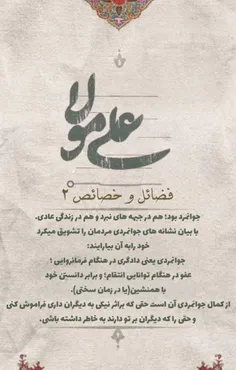 علی مولا
فضائل و خصائص ۲
جوانمرد بود؛ هم در جبهه های نبرد و هم در زندگی عادی.
با بیان نشانه های جوانمردی مردمان را تشویق میکرد
خود رابه آن بیارایند:
جوانمردی یعنی دادگری در هنگام فرمانروایی ؛
عفو در هنگام توانایی انتقام؛ و برابر دانستن خود
با همنشین(یا در زمان سختی).
از کمال جوانمردی آن است حقی که براثر نیکی به دیگران داری فراموش کنی
و حقی را که دیگران بر تو دارند به خاطر داشته باشی.